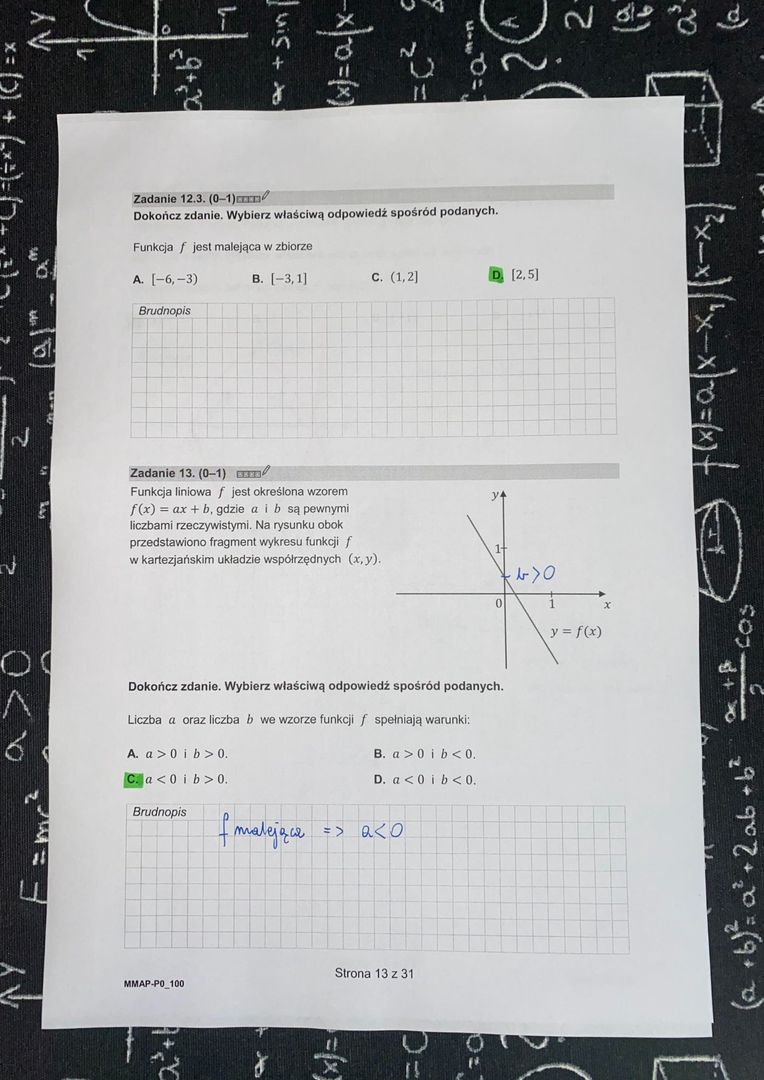 Zadanie 12.3. (0–1)
Dokończ zdanie. Wybierz właściwą odpowiedź spośród podanych.
Funkcja f jest malejąca w zbiorze
A. [−6, −3) B. [−3, 1] C. (1, 2] D. [2, 5]
Brudnopis
Zadanie 13. (0–1)
Funkcja liniowa f jest określona wzorem
f(x) = ax + b, gdzie a i b są pewnymi
liczbami rzeczywistymi. Na rysunku obok
przedstawiono fragment wykresu funkcji f
w kartezjańskim układzie współrzędnych (x, y).
y
1
b>0
0 1 x
y = f(x)
Dokończ zdanie. Wybierz właściwą odpowiedź spośród podanych.
Liczba a oraz liczba b we wzorze funkcji f spełniają warunki:
A. a > 0 i b > 0. B. a > 0 i b < 0.
C. a < 0 i b > 0. D. a < 0 i b < 0.
Brudnopis
f malejąca => a<0
Strona 13 z 31
MMAP-P0_100
E = mc²
a > 0
f(x)=a(x−x₁)(x−x₂)
(a+b)²=a²+2ab+b²